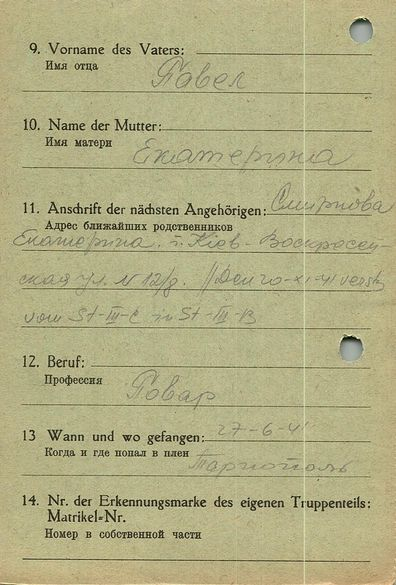 9. Vorname des Vaters:
Имя отца
Павел
10. Name der Mutter:
Имя матери
Екатерина
11. Anschrift der nächsten Angehörigen: Смирнова
Адрес ближайших родственников
Екатерина. г. Кіев - Воскресен-
ская ул. N 12/8. // Den 20-XI-41 vers.
vom St-III-C in St-III-B
12. Beruf:
Профессия
Повар
13 Wann und wo gefangen: 27-6-41
Когда и где попал в плен
Тарнополь
14. Nr. der Erkennungsmarke des eigenen Truppenteils:
Matrikel-Nr.
Номер в собственной части